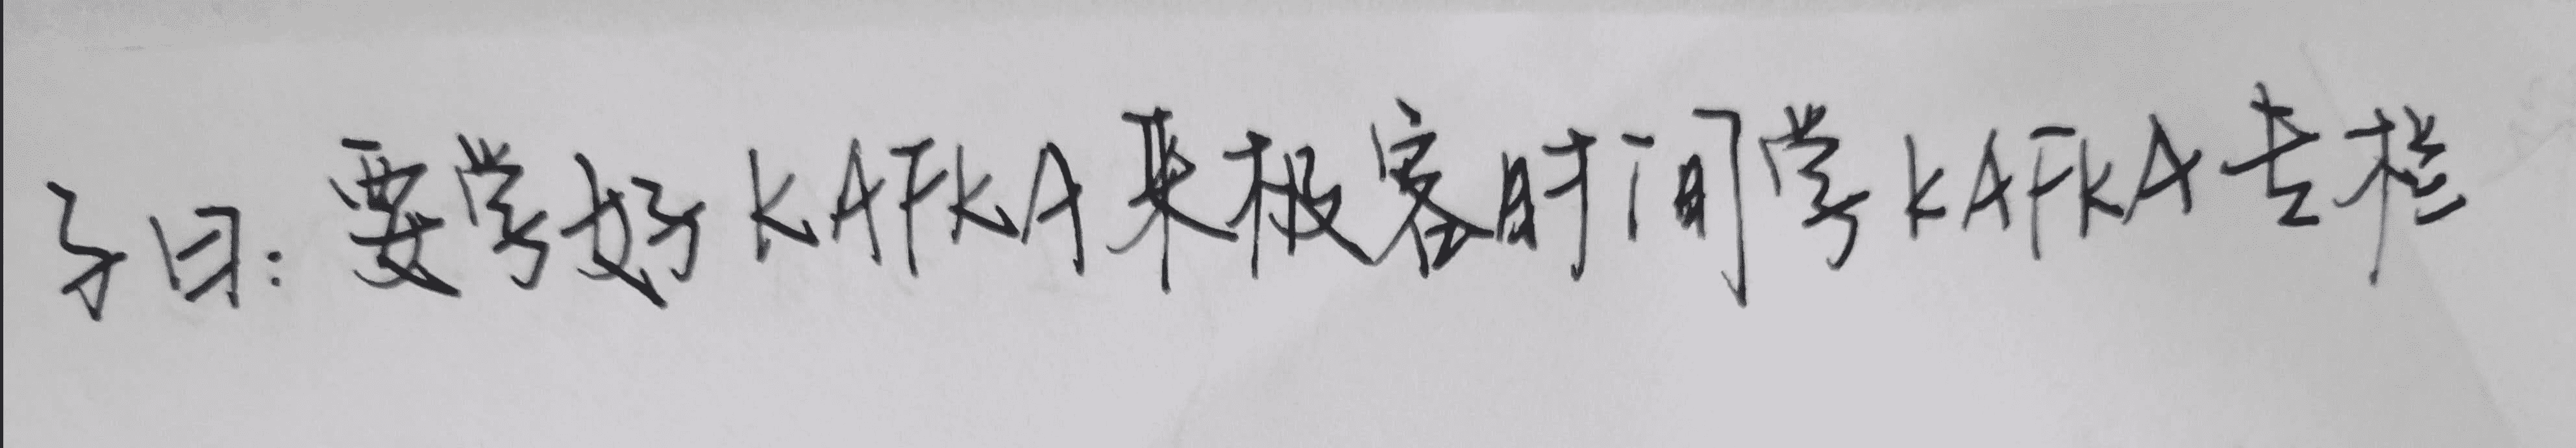 子曰:要学好KAFKA来极客时间学KAFKA专栏